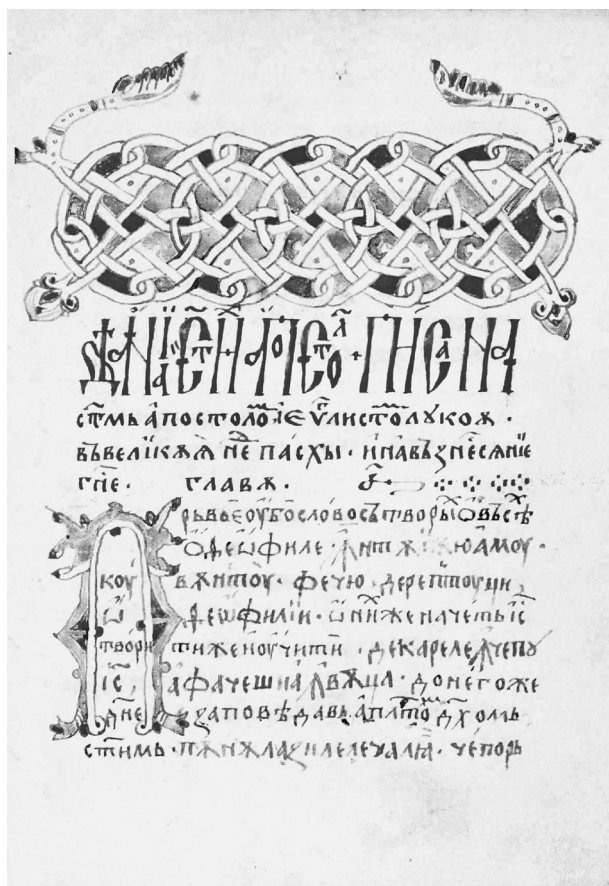 ДѢАНЇА СТ҃Н АПСТОЛ ПИСАНА
ст҃мь апостолѡм і еѵ҃листѡм лукоѫ ·
въвеликѫѧ нед҃ пасхы · инавъзнесѧнїе
гн҃е · главѫ · а҃
Прьвѡе оубо слово сътворы҃ ѡвъсѣ
ѡ деѡфиле · амоу ·
коу вѫнтоу · фечю · дерептоуци
ѡ деѡфилїи · ѡ нихже начеть і҃с
творити же и оучити · декареле чепу
і҃с, афаче шиа ꙟвѫца · до него же
дн҃е заповѣдавь ап҃лтом дх҃омь
ст҃имь · пѫнѫла зилеле · чепорь